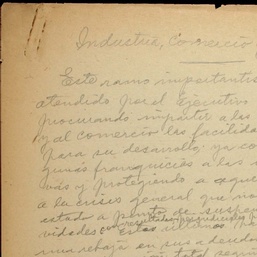 Industria, Comercio y
Este ramo importantis
atendido por el Ejecutivo
procurando impartir a las
y al comercio las facilida
para su desarrollo; ya co
gunas franquicias a las
vas y protegiendo a aque
a la crisis general que no
estado a punto de suspen
vidades
estas ultimas
una rebaja en sus adeudos
total